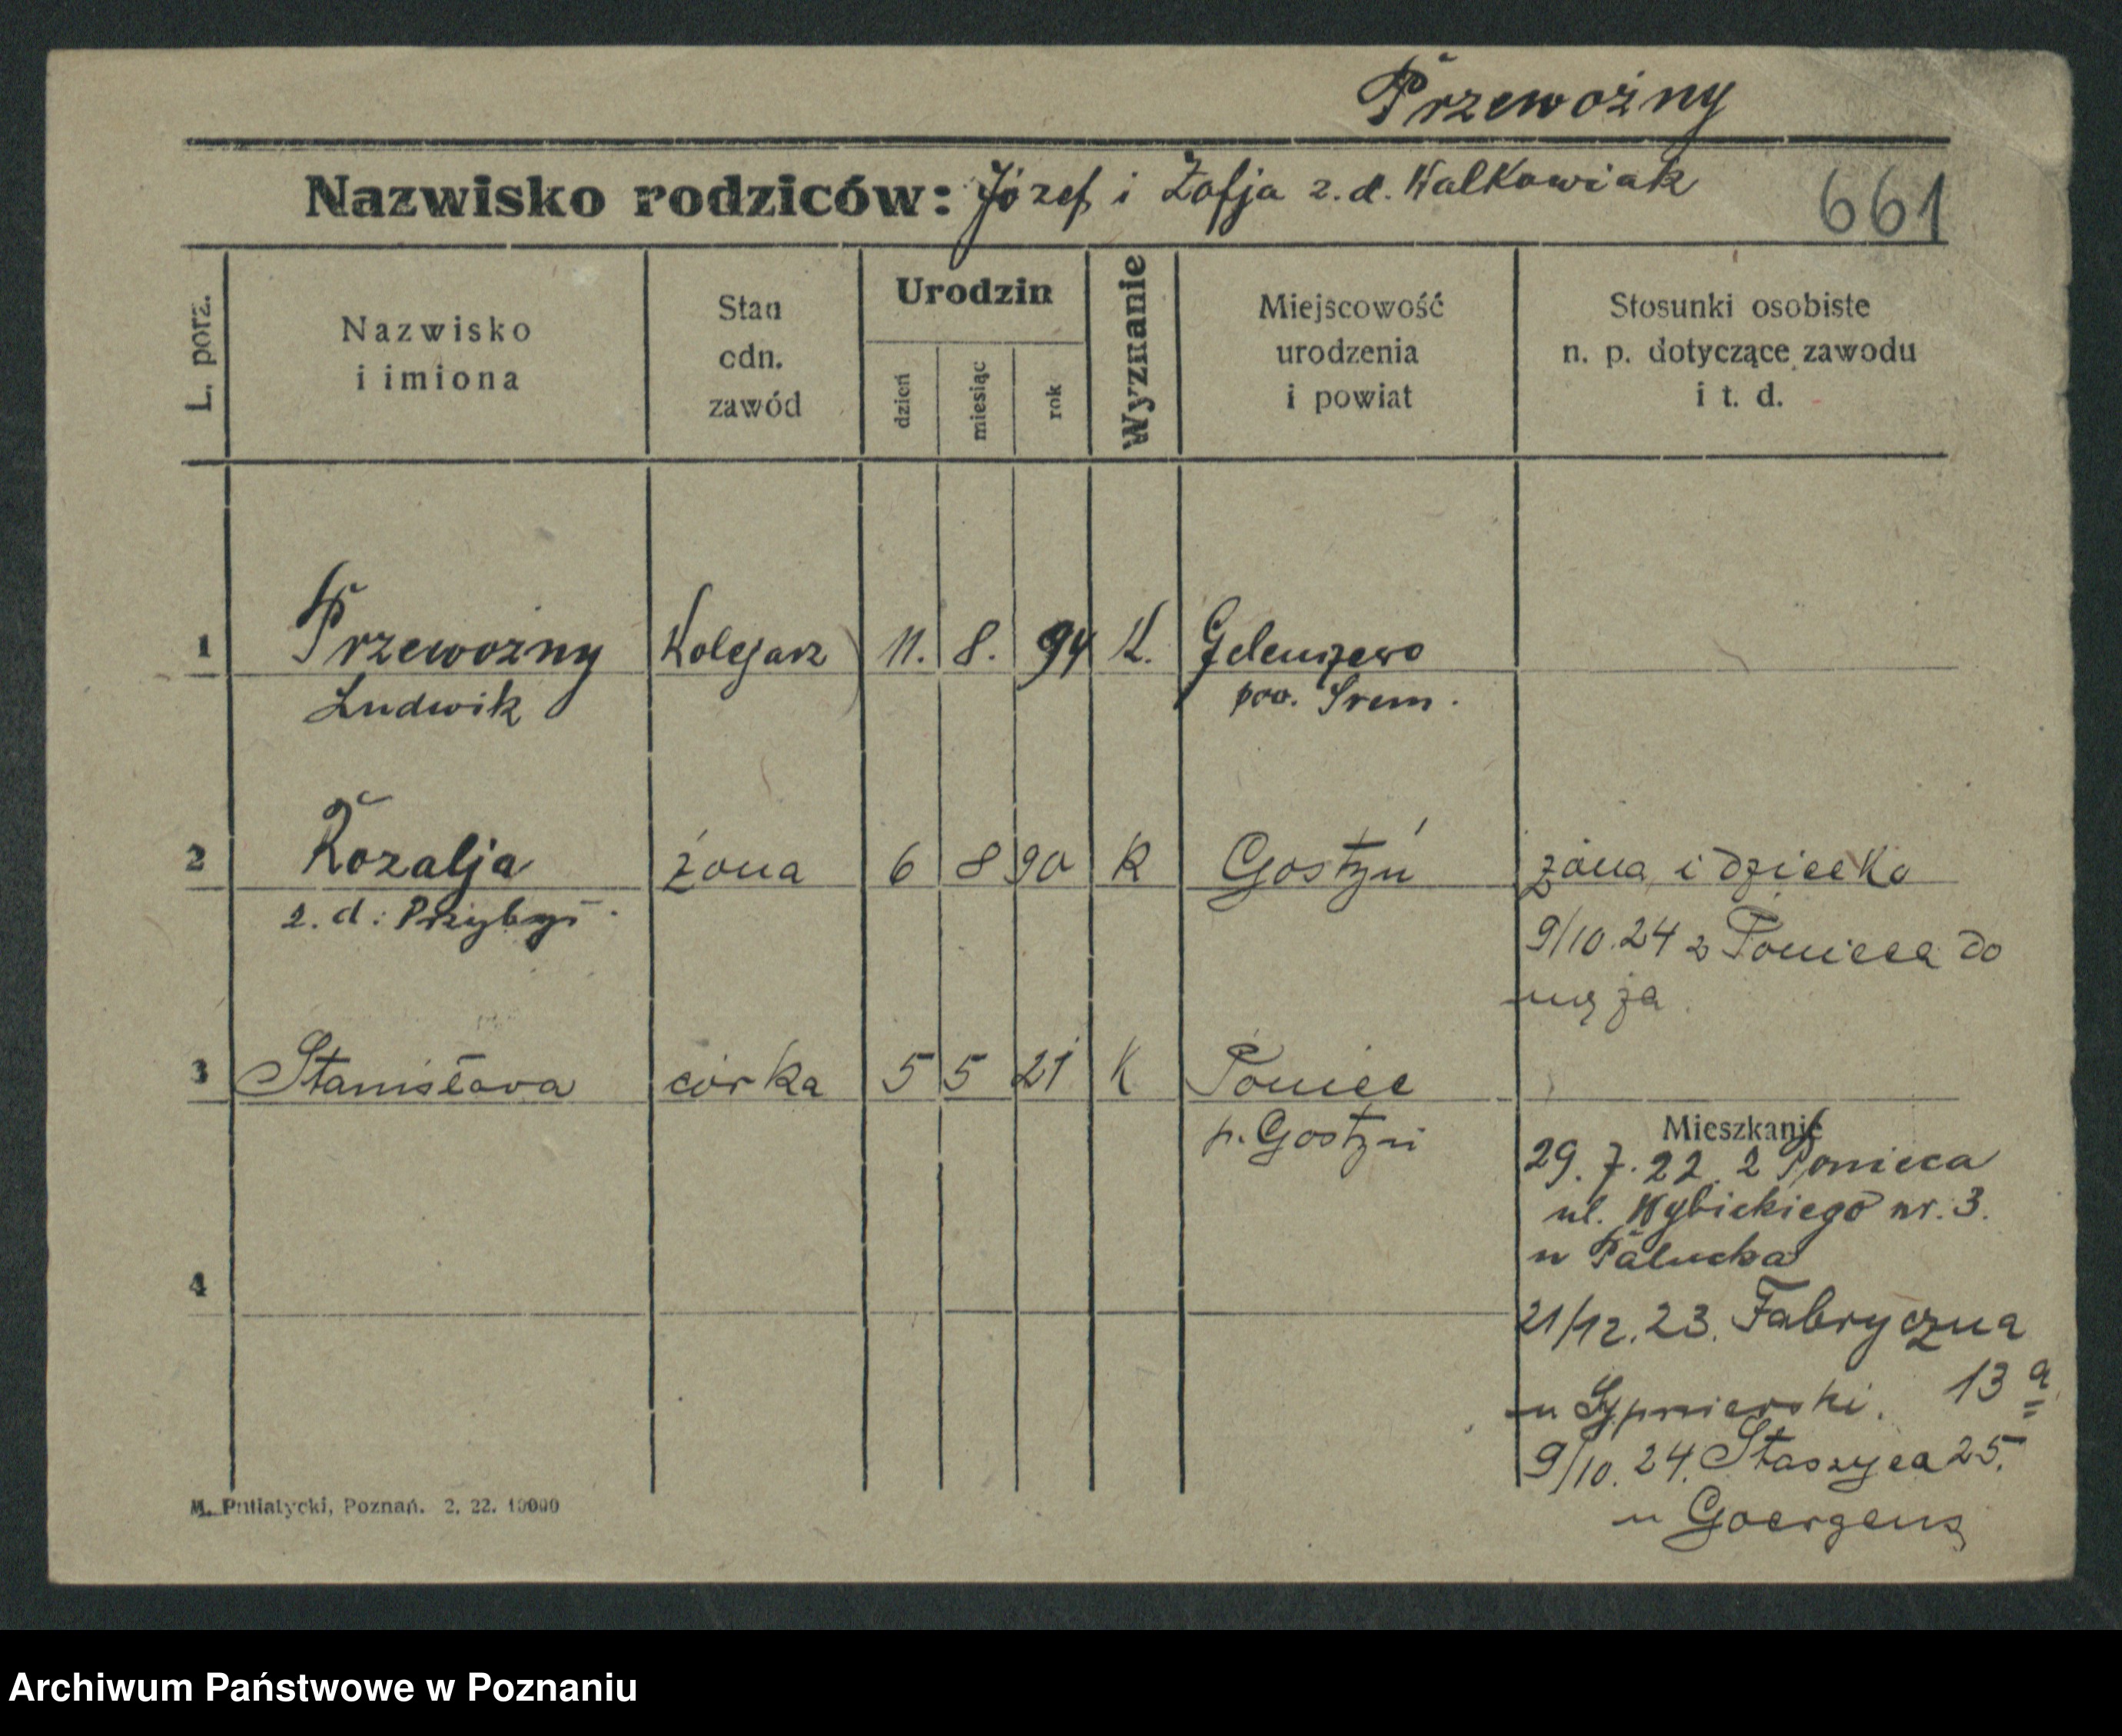 Przewoźny
Nazwisko rodziców: Józef i Zofja z. d. Walkowiak
661
L. porz.
Nazwisko
i imiona
Stan
odn.
zawód
Urodzin
dzień
miesiąc
rok
Wyznanie
Miejscowość
urodzenia
i powiat
Stosunki osobiste
n. p. dotyczące zawodu
i t. d.
1 Przewozny Kolejarz 11. 8. 94 K.
Ludwik pow. Srem.
2 Rozalja żona 6 8 90 K Gostyń żona i dziecko
z. d: 9/10.24 z Ponieca do
męża
3 Stanisława córka 5 5 21 K Poniec
p. Gostyń
Mieszkanie
29. 7. 22. z Ponieca
ul. Wybickiego nr. 3.
u Pałucka
4
21/12. 23. Fabryczna
u 13 a
9/10. 24. Staszyca 25.
u
M. Putiatycki, Poznań. 2. 22. 10000
Archiwum Państwowe w Poznaniu